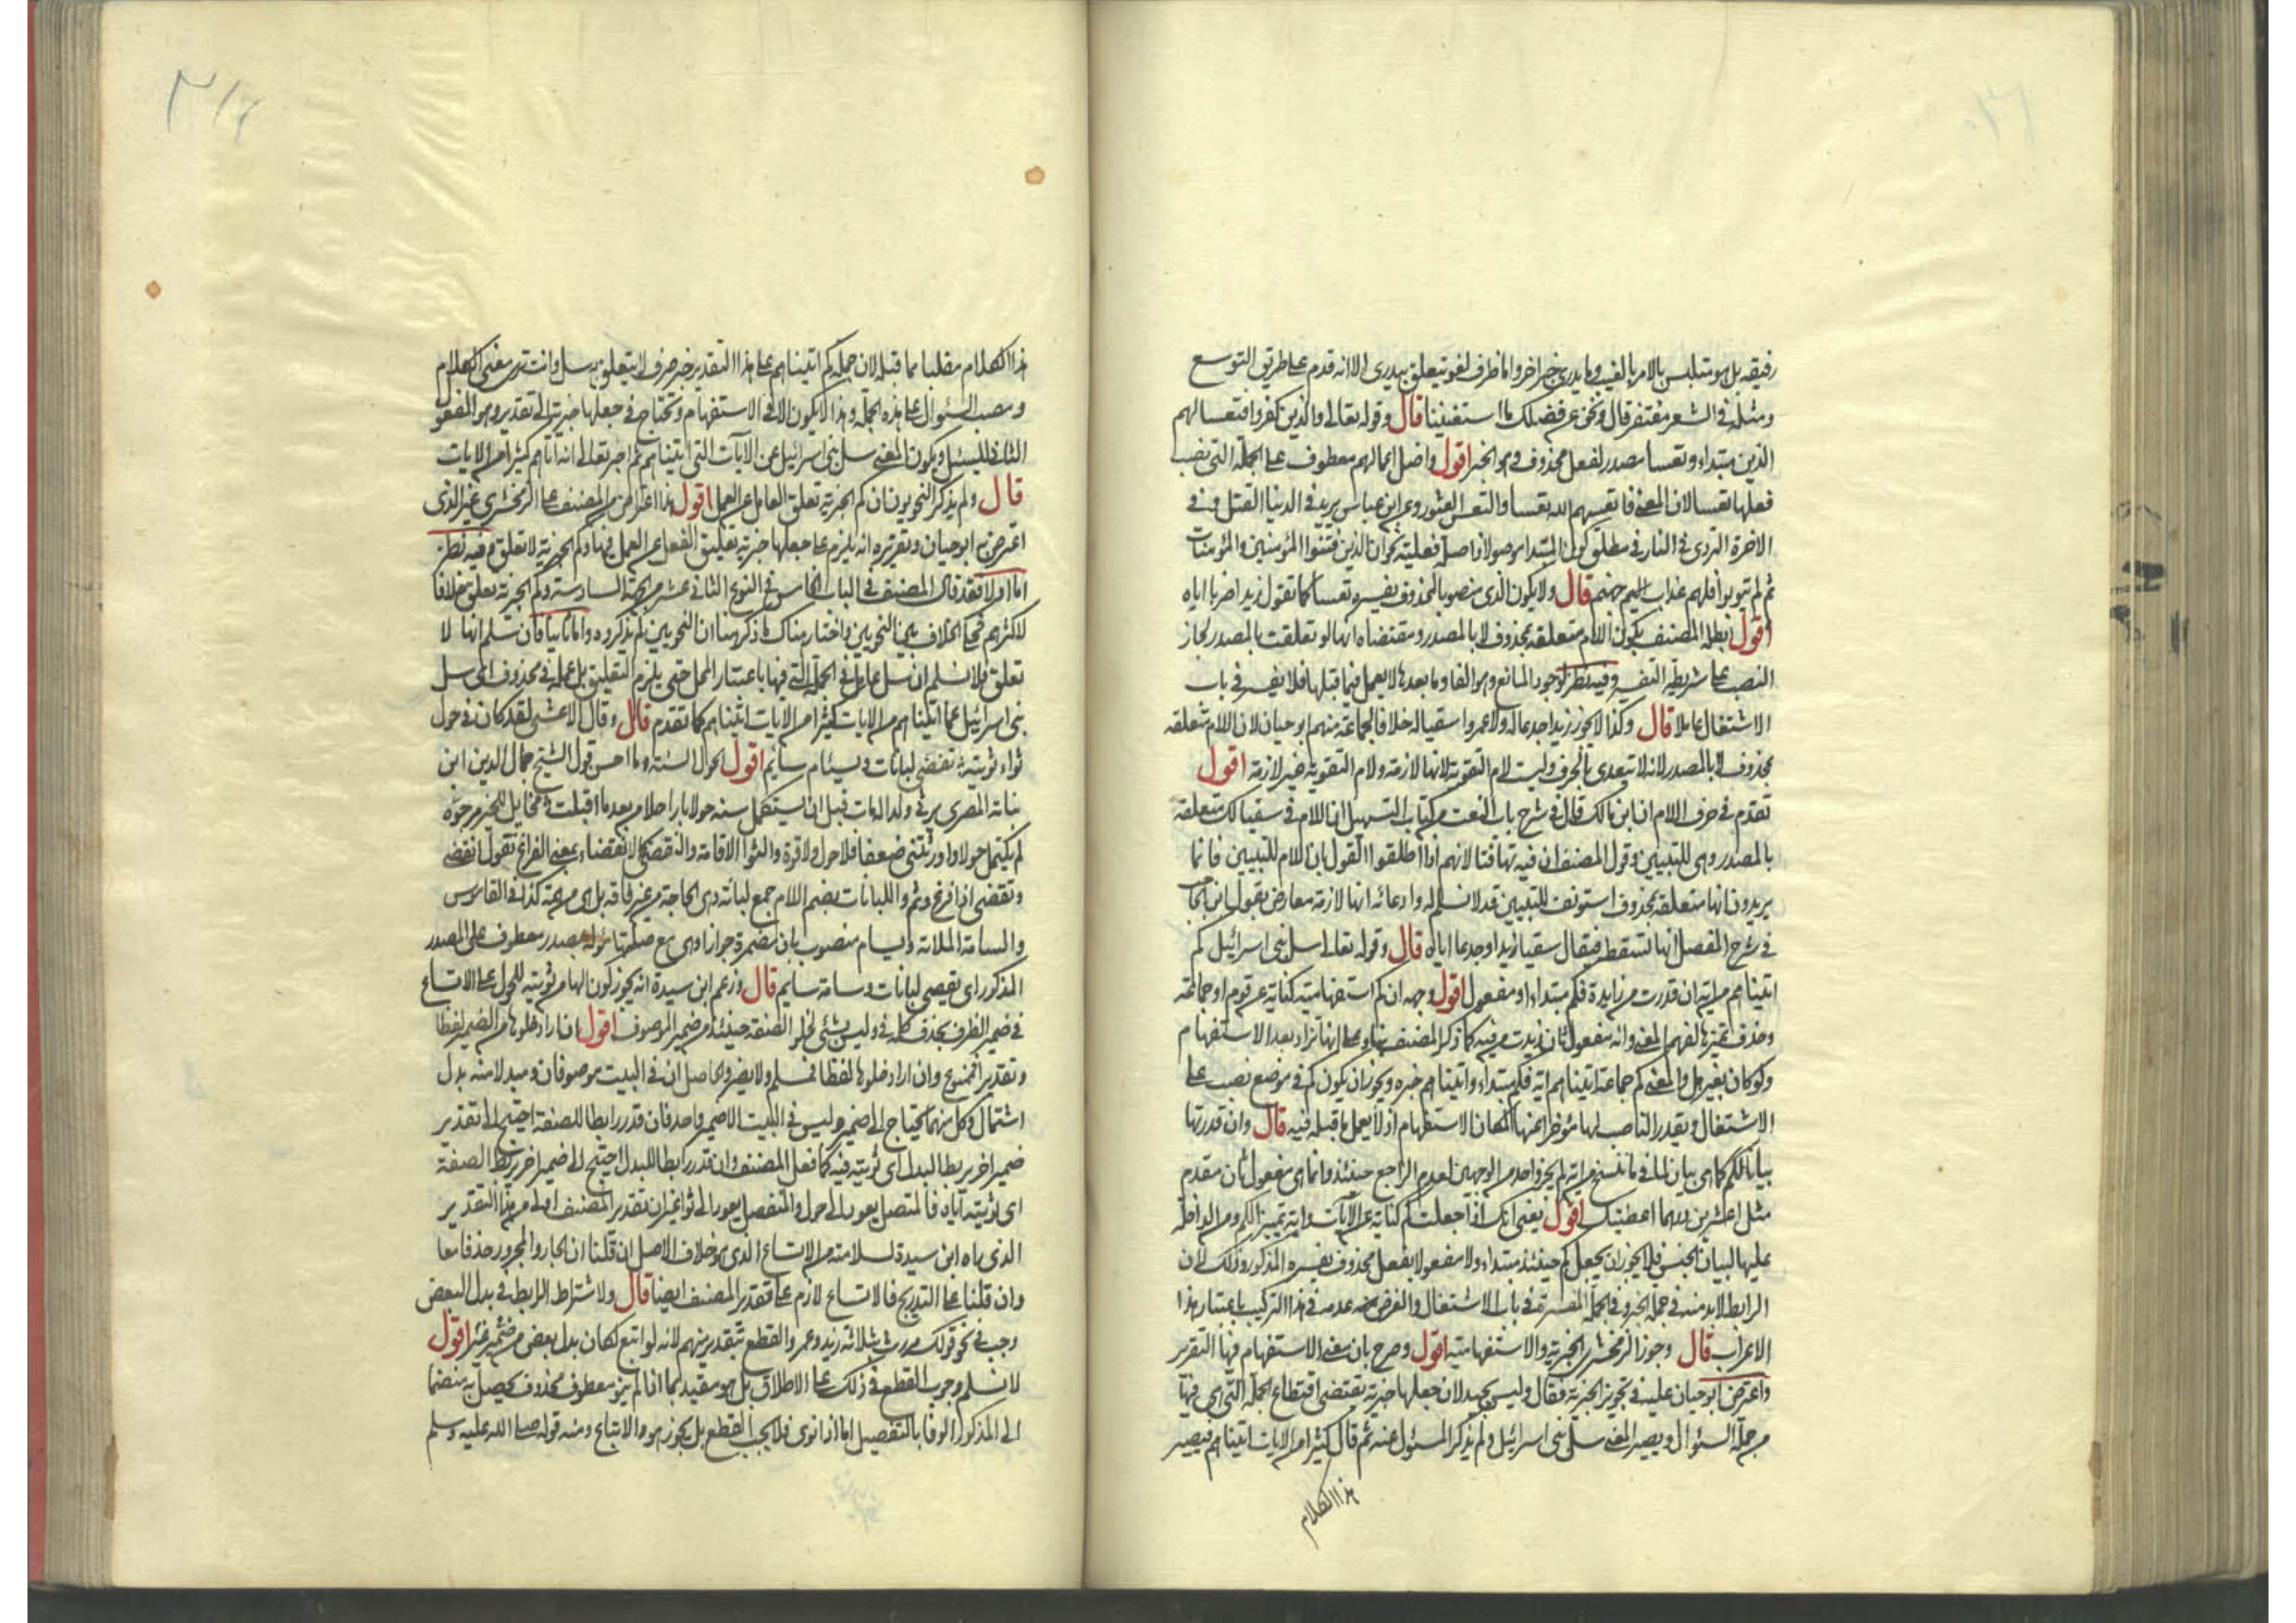 رفيقه بل هو متلبس بالامر بالغيب وما يدري خبر اخر واما ظرف لغو يتعلق بيدري الا انه قدم على طريق التوسع
ومثله في الشعر مغتفر قال ونحن عن فضلك ما استغنينا قال وقوله تعالى والذين كفروا فتعسا لهم
الذين مبتداء وتعسا مصدر لفعل محذوف وهو الخبر اقول واضل اعمالهم معطوف على الجملة التي نصب
فعلها تعسا لان المعنى فاتعسهم الله تعسا والتعس العثور وعن ابن عباس يريد في الدنيا القتل وفي
الاخرة التردي في النار في مطلق كون المبتدا موصولا واصله فعلية نحو ان الذين فتنوا المؤمنين والمؤمنات
ثم لم يتوبوا فلهم عذاب جهنم قال ولا يكون الذي منصوبا لمحذوف يفسره تعسا كما تقول زيدا ضربا اياه
اقول ابطله المصنف بكون اللام متعلقه بمحذوف لا بالمصدر ومقتضاه انها لو تعلقت بالمصدر لجاز
النصب على شريطة التفسير وفيه نظر لوجود المانع وهو الفا وما بعدها لا يعمل فيما قبلها فلا يفسر في باب
الاشتغال عاملا قال وكذا لا يجوز زيدا جدعا له ولا عمروا سقيا له خلافا لجماعة منهم ابو حيان لان اللام متعلقه
بمحذوف لا بالمصدر لانه لا يتعدى بالحرف وليست لام التقوية لانها لازمة ولام التقوية غير لازمة اقول
تقدم في حرف اللام ان ابن مالك قال في شرح باب النعت من كتاب التسهيل ان اللام في سقيا لك متعلقة
بالمصدر وهي للتبيين وقول المصنف ان فيه تهافتا لانهم اذا اطلقوا القول بان اللام للتبيين فانما
يريدون انها متعلقة بمحذوف استونف للتبيين قد لا نسلم له وادعائه انها لازمة معارض بقول ابن الحاجب
في شرح المفصل انها تسقط فيقال سقيا زيدا وجدعا اياه قال وقوله تعالى سل بني اسرائيل كم
اتيناهم من آية ان قدرت من زايدة فكم مبتداء او مفعول اقول وجهه ان كم استفهامية كناية عن قوم او جماعة
وحذف تمييزها لفهم المعنى وآية مفعول ثان زيدت من فيه كما ذكر المصنف بناء على انها تزاد بعد الاستفهام
ولو كان بغير هل والمعنى كم جماعة اتيناهم آية فكم مبتداء واتيناهم خبره ويجوز ان يكون كم في موضع نصب على
الاشتغال ويقدر الناصب لها مؤخرا عنها لمكان الاستفهام اذ لا يعمل ما قبله فيه قال وان قدرتها
بيانا لكم كما هي بيان لما في ما ننسخ من آية لم يجز واحد من الوجهين لعدم الراجع حينئذ وانما هي مفعول ثان مقدم
مثل اعشرين درهما اعطيتك اقول يعني انك اذا جعلت كم كناية عن الآيات وآية تمييزا لكم ومن الداخلة
عليها لبيان الجنس فلا يجوز ان يجعل كم حينئذ مبتداء ولا مفعولا بفعل محذوف يفسره المذكور وذلك لان
الرابط لا بد منه في جملة الخبر وفي الجملة المفسرة في باب الاشتغال والفرض عدمه في هذا التركيب باعتبار هذا
الاعراب قال وجوز الزمخشري الخبرية والاستفهامية اقول وصرح بان معنى الاستفهام فيها التقرير
واعترض ابو حيان عليه في تجويز الخبرية فقال وليس بجيد لان جعلها خبرية يقتضي اقتطاع الجملة التي هي فيها
من جملة السئوال ويصير المعنى سل بني اسرائيل ولم يذكر المسئول عنه ثم قال كثيرا من الايات اتيناهم فيصير
هذا الكلام
هذا الكلام مفلتا مما قبله لان جملة كم اتيناهم على هذا التقدير خبر صرف لا يتعلق به سل وانت ترى معنى الكلام
ومصب السئوال على هذه الجملة وهذا لا يكون الا في الاستفهام وتحتاج في جعلها خبرية الى تقدير وهو المفعول
الثاني لسل ويكون المعنى سل بني اسرائيل عن الآيات التي اتيناهم ثم اخبر تعالى انه آتاهم كثيرا من الايات
قال ولم يذكر النحويون ان كم الخبرية تعلق العامل عن العمل اقول هذا اعتراض من المصنف على الزمخشري غير الذي
اعترض به ابو حيان وتقريره انه يلزم على جعلها خبرية تعليق الفعل عن العمل فيها وكم الخبرية لا تعلق وفيه نظر
اما اولا فقد قال المصنف في الباب الخامس في النوع الثاني عشر من الجهة السادسة وكم الخبرية تعلق خلافا
لاكثرهم فحكى الخلاف بين النحويين واختار هناك ما ذكر هنا ان النحويين لم يذكروه واما ثانيا فان سلم انها لا
تعلق فلا نسلم ان سل عامل في الجملة التي فيها باعتبار المحل حتى يلزم التعليق بل عمله في محذوف اي سل
بني اسرائيل عما اتيناهم من الايات كثيرا من الايات اتيناهم كما تقدم قال وقال الاعشى لقد كان في حول
ثواء ثويته تقضي لبانات ويسئام سايم اقول الحول السنة وما احسن قول الشيخ جمال الدين ابن
نباتة المصري يرثي ولدا له مات قبل ان يستكمل سنة حولا يا راحلا من بعد ما اقبلت مخايل للخير مرجوه
لم تكتمل حولا واورثتني ضعفا فلا حول ولا قوة والثوا الاقامة والتقضي كالانقضاء بمعنى الفراغ تقول انقضى
وتقضى اذا فرغ وتم واللبانات بضم اللام جمع لبانة وهي الحاجة من غير فاقة بل من همة كذا في القاموس
والسامة الملالة ويسام منصوب بان مضمرة جوازا وهي مع صلتها مصدر معطوف على المصدر
المذكور اي تقضي لبانات وسامة سايم قال وزعم ابن سيدة انه يجوز كون الهاء من ثويته للحول على الاتساع
في ضمير الظرف بحذف كلمة في وليس بشئ لخلو الصفة حينئذ من ضمير الموصوف اقول ان اراد خلوها من الضمير لفظا
وتقديرا فممنوع وان اراد خلوها لفظا فمسلم ولا يضر والحاصل ان في البيت موصوفا ومبدلا منه بدل
اشتمال وكل منهما يحتاج الى ضمير وليس في البيت الا ضمير واحد فان قدر رابطا للصفة احتيج الى تقدير
ضمير اخر يربط البدل اي ثويته فيه كما فعل المصنف وان قدر رابطا للبدل احتيج الى ضمير اخر يربط الصفة
اي ثويته آياه فالمتصل يعود الى حول والمنفصل يعود الى ثواء غير ان تقدير المصنف اولى من هذا التقدير
الذي راه ابن سيدة لسلامته من الاتساع الذي هو خلاف الاصل ان قلنا ان الجار والمجرور حذفا معا
وان قلنا على التدريج فالاتساع لازم على تقدير المصنف ايضا قال ولاشتراط الرابط في بدل البعض
وجب في نحو قولك مررت بثلاثة زيد وعمرو القطع بتقدير منهم لانه لو اتبع لكان بدل بعض من غير ضمير اقول
لا نسلم وجوب القطع في ذلك على الاطلاق بل هو مقيد بما اذا لم ينو معطوف محذوف يحصل به منضما
الى المذكور الوفا بالتفصيل اما اذا نوى فلا يجب القطع بل يجوز هو والاتباع ومنه قوله صلى الله عليه وسلم